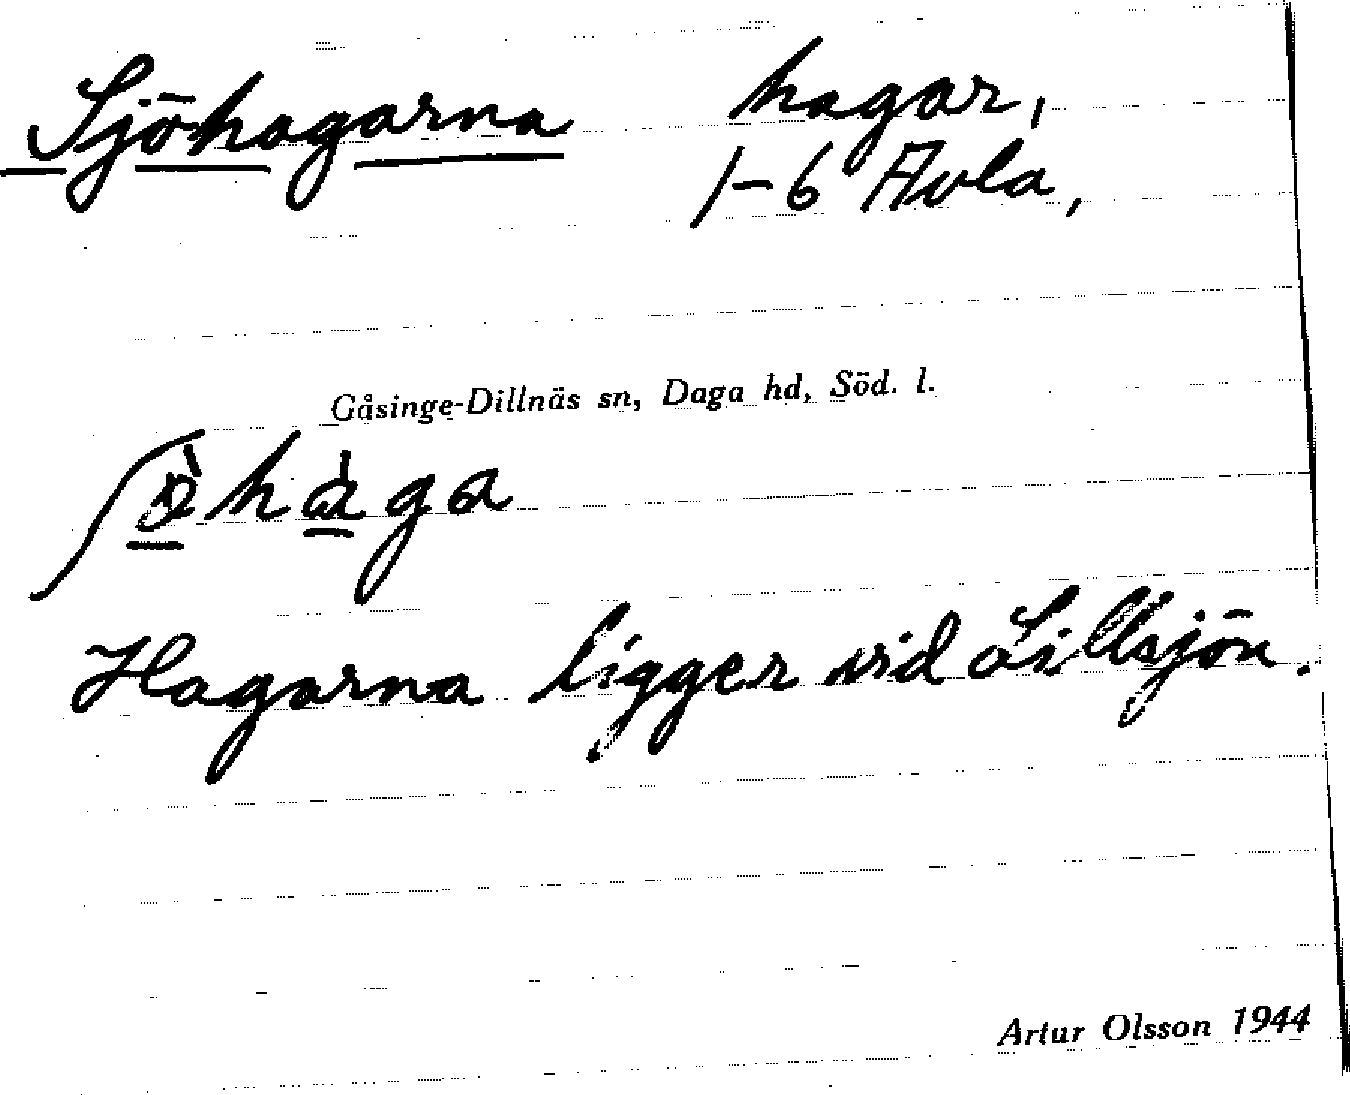 Sjöhagarna hagar,
1-6 Avla,
Gåsinge-Dillnäs sn, Daga hd, Söd. l.
Hagarna ligger vid Lillsjön.
Artur Olsson 1944